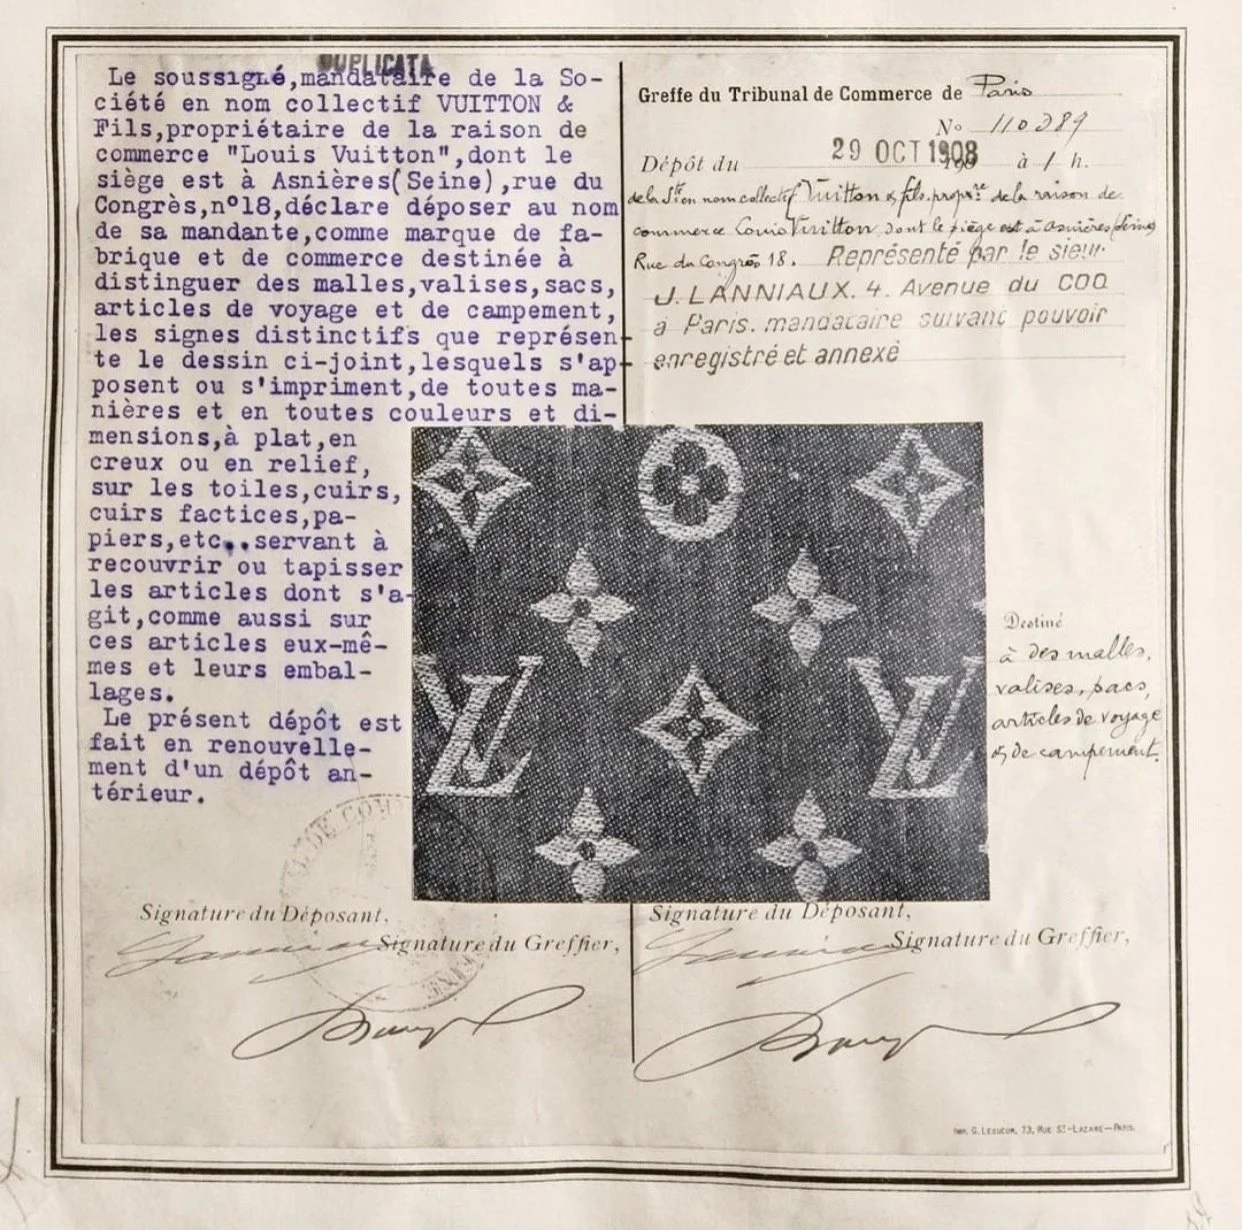 DUPLICATA
Le soussigné,mandataire de la So-
ciété en nom collectif VUITTON &
Fils,propriétaire de la raison de
commerce "Louis Vuitton",dont le
siège est à Asnières(Seine),rue du
Congrès,nº18,déclare déposer au nom
de sa mandante,comme marque de fa-
brique et de commerce destinée à
distinguer des malles,valises,sacs,
articles de voyage et de campement,
les signes distinctifs que représen-
te le dessin ci-joint,lesquels s'ap-
posent ou s'impriment,de toutes ma-
nières et en toutes couleurs et di-
mensions,à plat,en
creux ou en relief,
sur les toiles,cuirs,
cuirs factices,pa-
piers,etc..servant à
recouvrir ou tapisser
les articles dont s'a-
git,comme aussi sur
ces articles eux-mê-
mes et leurs embal-
lages.
Le présent dépôt est
fait en renouvelle-
ment d'un dépôt an-
térieur.
Signature du Déposant,
Signature du Greffier,
Greffe du Tribunal de Commerce de Paris
Nº 110389
Dépôt du 29 OCT 1908 à 1 h.
de la Sté en nom collectif Vuitton & fils, propre de la raison de
commerce Louis Vuitton, dont le siège est à Asnières (Seine)
Rue du Congrès 18. Représenté par le sieur
J. LANNIAUX. 4. Avenue du COQ
à Paris. mandataire suivant pouvoir
enregistré et annexé
LV LV
Destiné
à des malles,
valises, sacs,
articles de voyage
& de campement.
Signature du Déposant,
Signature du Greffier,
Imp. G. Lesueur, 73, Rue St-Lazare—Paris.